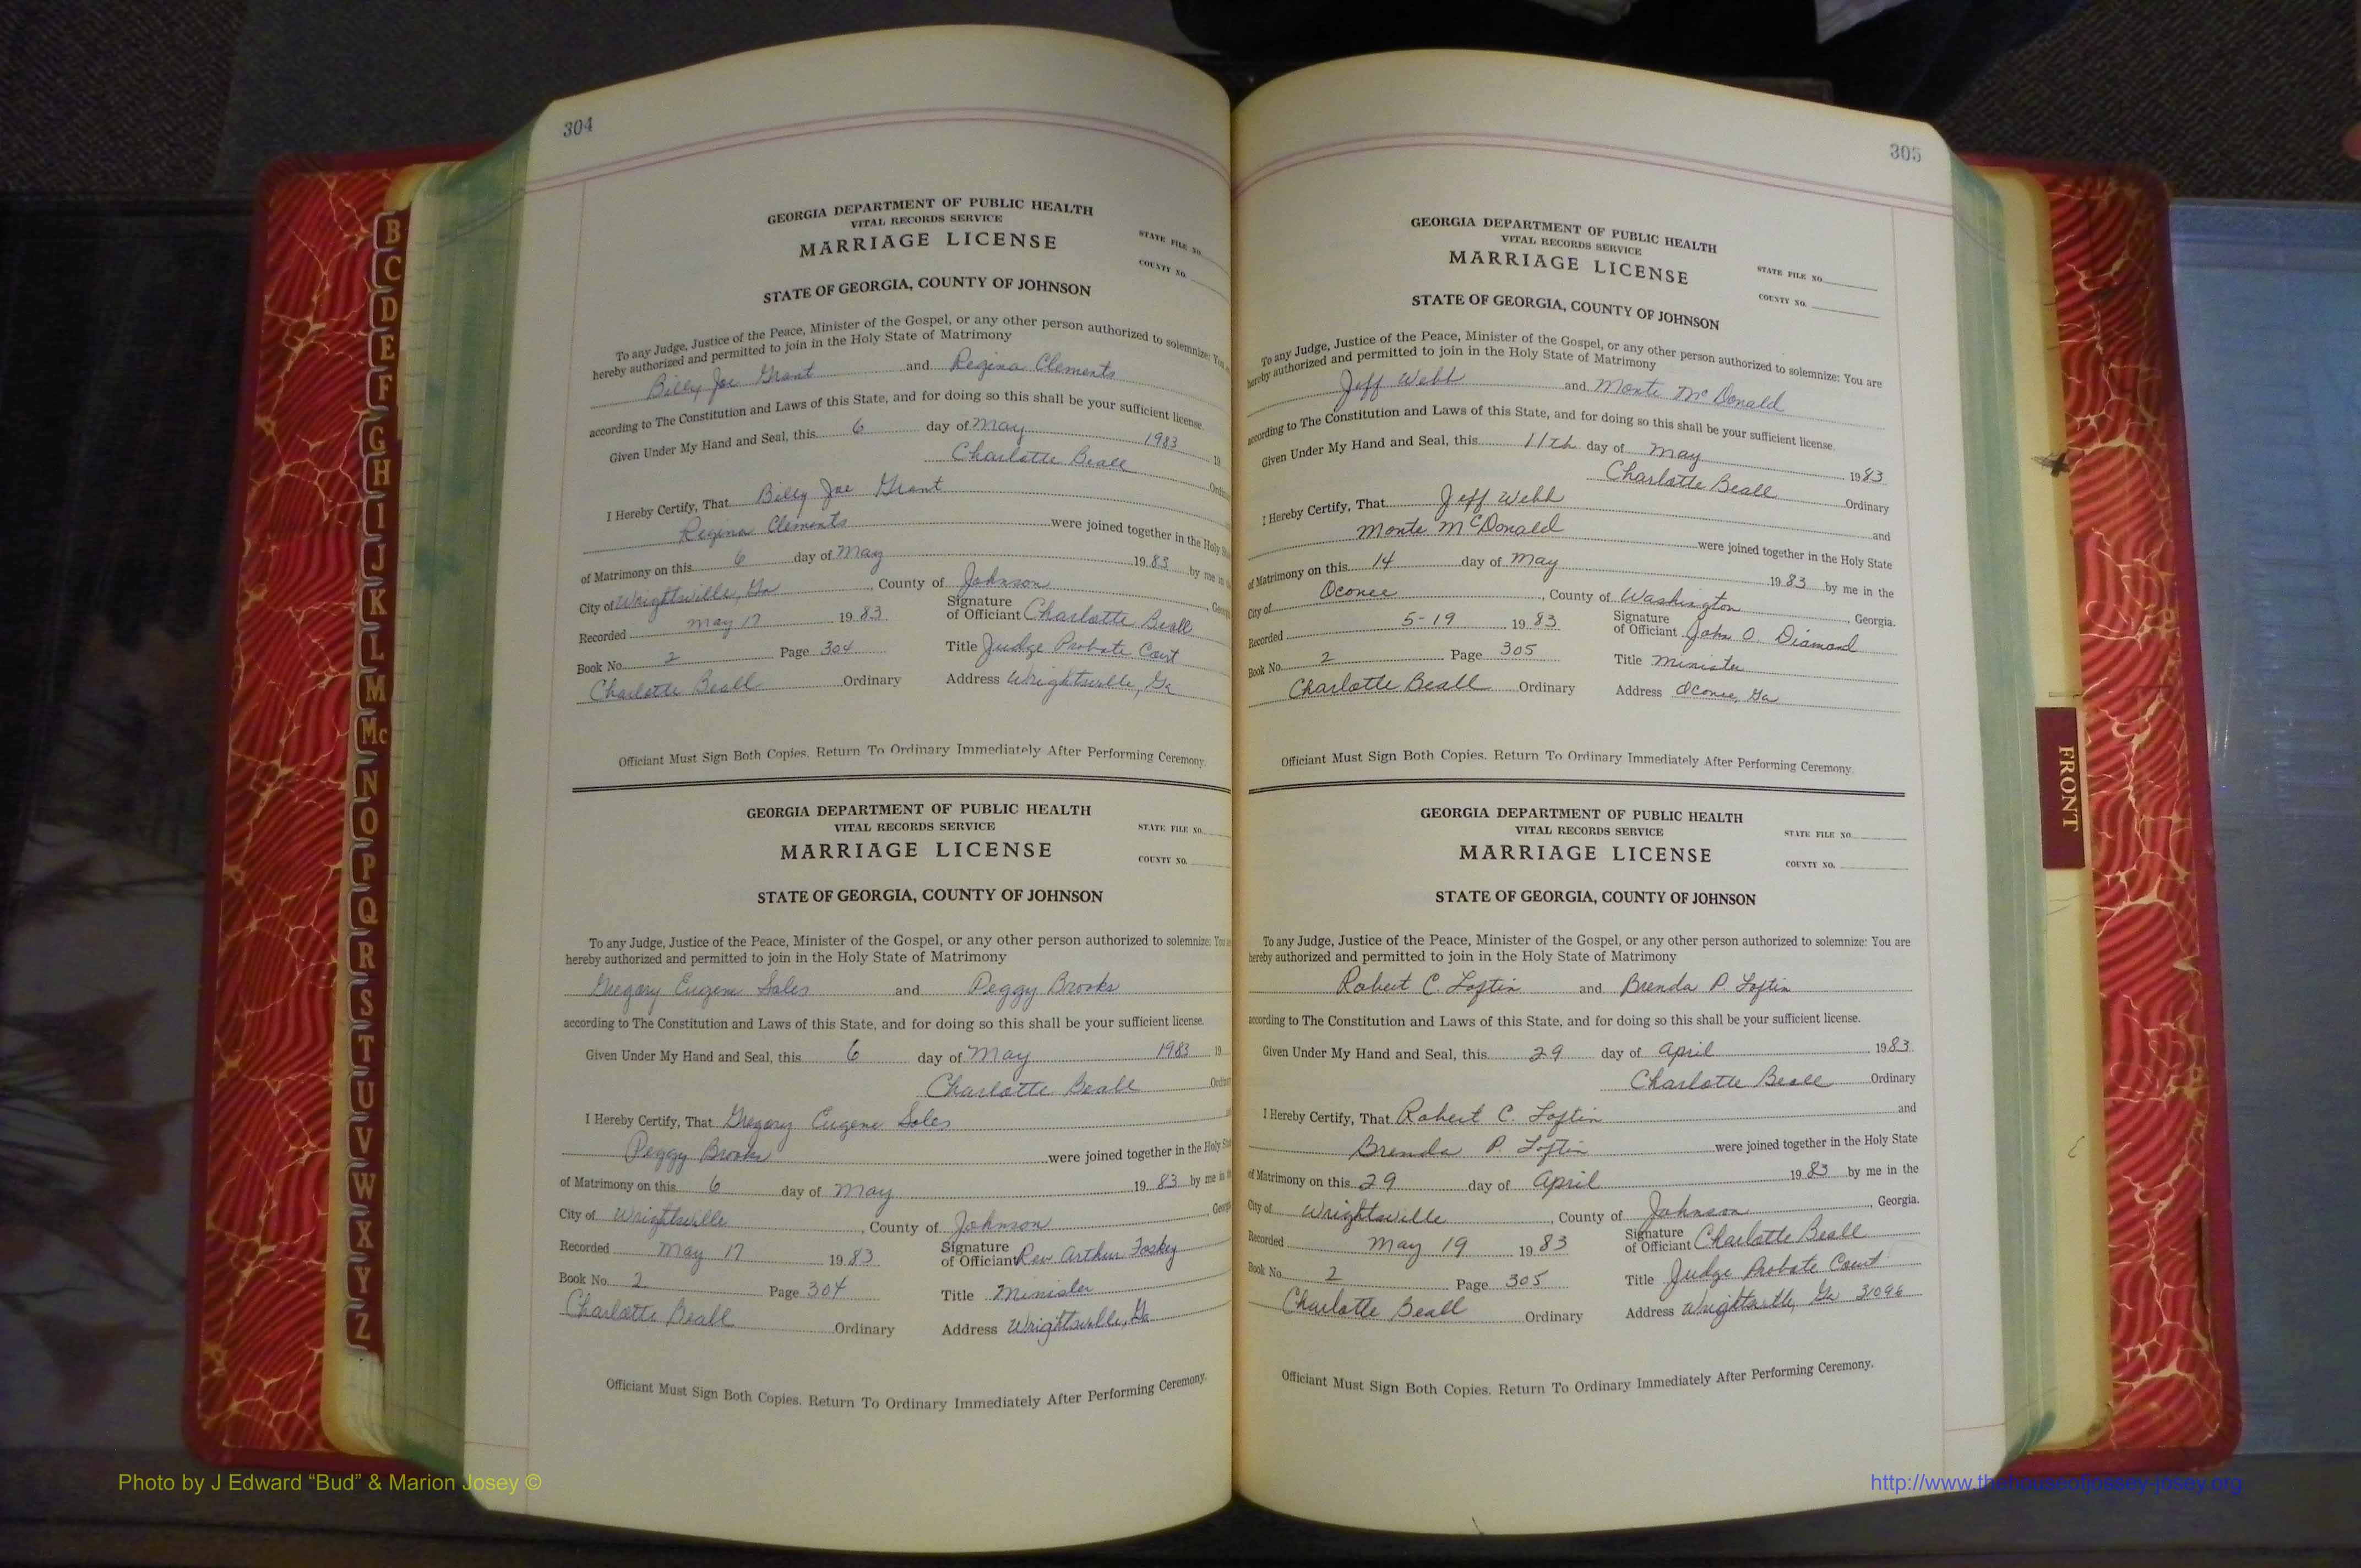 304
GEORGIA DEPARTMENT OF PUBLIC HEALTH
VITAL RECORDS SERVICE
MARRIAGE LICENSE
STATE FILE NO.
COUNTY NO.
STATE OF GEORGIA, COUNTY OF JOHNSON
To any Judge, Justice of the Peace, Minister of the Gospel, or any other person authorized to solemnize: You
hereby authorized and permitted to join in the Holy State of Matrimony
Billy Joe Grant and Regina Clements
according to The Constitution and Laws of this State, and for doing so this shall be your sufficient license.
Given Under My Hand and Seal, this 6 day of May 1983 19
Charlotte Beall
I Hereby Certify, That Billy Joe Grant
Regina Clements were joined together in the Holy
of Matrimony on this 6 day of May 19 83 by me in
City of Wrightsville, Ga, County of Johnson
Recorded May 17 19 83 Signature of Officiant Charlotte Beall
Book No. 2 Page 304 Title Judge Probate Court
Charlotte Beall Ordinary Address Wrightsville, Ga
Officiant Must Sign Both Copies. Return To Ordinary Immediately After Performing Ceremony.
GEORGIA DEPARTMENT OF PUBLIC HEALTH
VITAL RECORDS SERVICE
MARRIAGE LICENSE
STATE FILE NO.
COUNTY NO.
STATE OF GEORGIA, COUNTY OF JOHNSON
To any Judge, Justice of the Peace, Minister of the Gospel, or any other person authorized to solemnize: You
hereby authorized and permitted to join in the Holy State of Matrimony
Gregory Eugene Sales and Peggy Brooks
according to The Constitution and Laws of this State, and for doing so this shall be your sufficient license.
Given Under My Hand and Seal, this 6 day of May 1983 19
Charlotte Beall
I Hereby Certify, That Gregory Eugene Sales
Peggy Brooks were joined together in the Holy
of Matrimony on this 6 day of May 19 83 by me in
City of Wrightsville, County of Johnson
Recorded May 17 19 83 Signature of Officiant Rev Arthur Foskey
Book No. 2 Page 304 Title Minister
Charlotte Beall Ordinary Address Wrightsville, Ga
Officiant Must Sign Both Copies. Return To Ordinary Immediately After Performing Ceremony.
305
GEORGIA DEPARTMENT OF PUBLIC HEALTH
VITAL RECORDS SERVICE
MARRIAGE LICENSE
STATE FILE NO.
COUNTY NO.
STATE OF GEORGIA, COUNTY OF JOHNSON
To any Judge, Justice of the Peace, Minister of the Gospel, or any other person authorized to solemnize: You are
hereby authorized and permitted to join in the Holy State of Matrimony
Jeff Webb and Monte McDonald
according to The Constitution and Laws of this State, and for doing so this shall be your sufficient license.
Given Under My Hand and Seal, this 11th day of May 1983
Charlotte Beall Ordinary
I Hereby Certify, That Jeff Webb
Monte McDonald and
were joined together in the Holy State
of Matrimony on this 14 day of May 19 83 by me in the
City of Oconee, County of Washington, Georgia.
Recorded 5-19 19 83 Signature of Officiant John O. Diamond
Book No. 2 Page 305 Title Minister
Charlotte Beall Ordinary Address Oconee, Ga
Officiant Must Sign Both Copies. Return To Ordinary Immediately After Performing Ceremony.
GEORGIA DEPARTMENT OF PUBLIC HEALTH
VITAL RECORDS SERVICE
MARRIAGE LICENSE
STATE FILE NO.
COUNTY NO.
STATE OF GEORGIA, COUNTY OF JOHNSON
To any Judge, Justice of the Peace, Minister of the Gospel, or any other person authorized to solemnize: You are
hereby authorized and permitted to join in the Holy State of Matrimony
Robert C. Loftin and Brenda P. Loftin
according to The Constitution and Laws of this State, and for doing so this shall be your sufficient license.
Given Under My Hand and Seal, this 29 day of April 1983
Charlotte Beall Ordinary
I Hereby Certify, That Robert C. Loftin and
Brenda P. Loftin were joined together in the Holy State
of Matrimony on this 29 day of April 19 83 by me in the
City of Wrightsville, County of Johnson, Georgia.
Recorded May 19 19 83 Signature of Officiant Charlotte Beall
Book No. 2 Page 305 Title Judge Probate Court
Charlotte Beall Ordinary Address Wrightsville, Ga 31096
Officiant Must Sign Both Copies. Return To Ordinary Immediately After Performing Ceremony.
B
C
D
E
F
G
H
I
J
K
L
M
Mc
N
O
P
Q
R
S
T
U
V
W
X
Y
Z
FRONT
Photo by J Edward “Bud” & Marion Josey ©
http://www.thehouseofjossey-josey.org